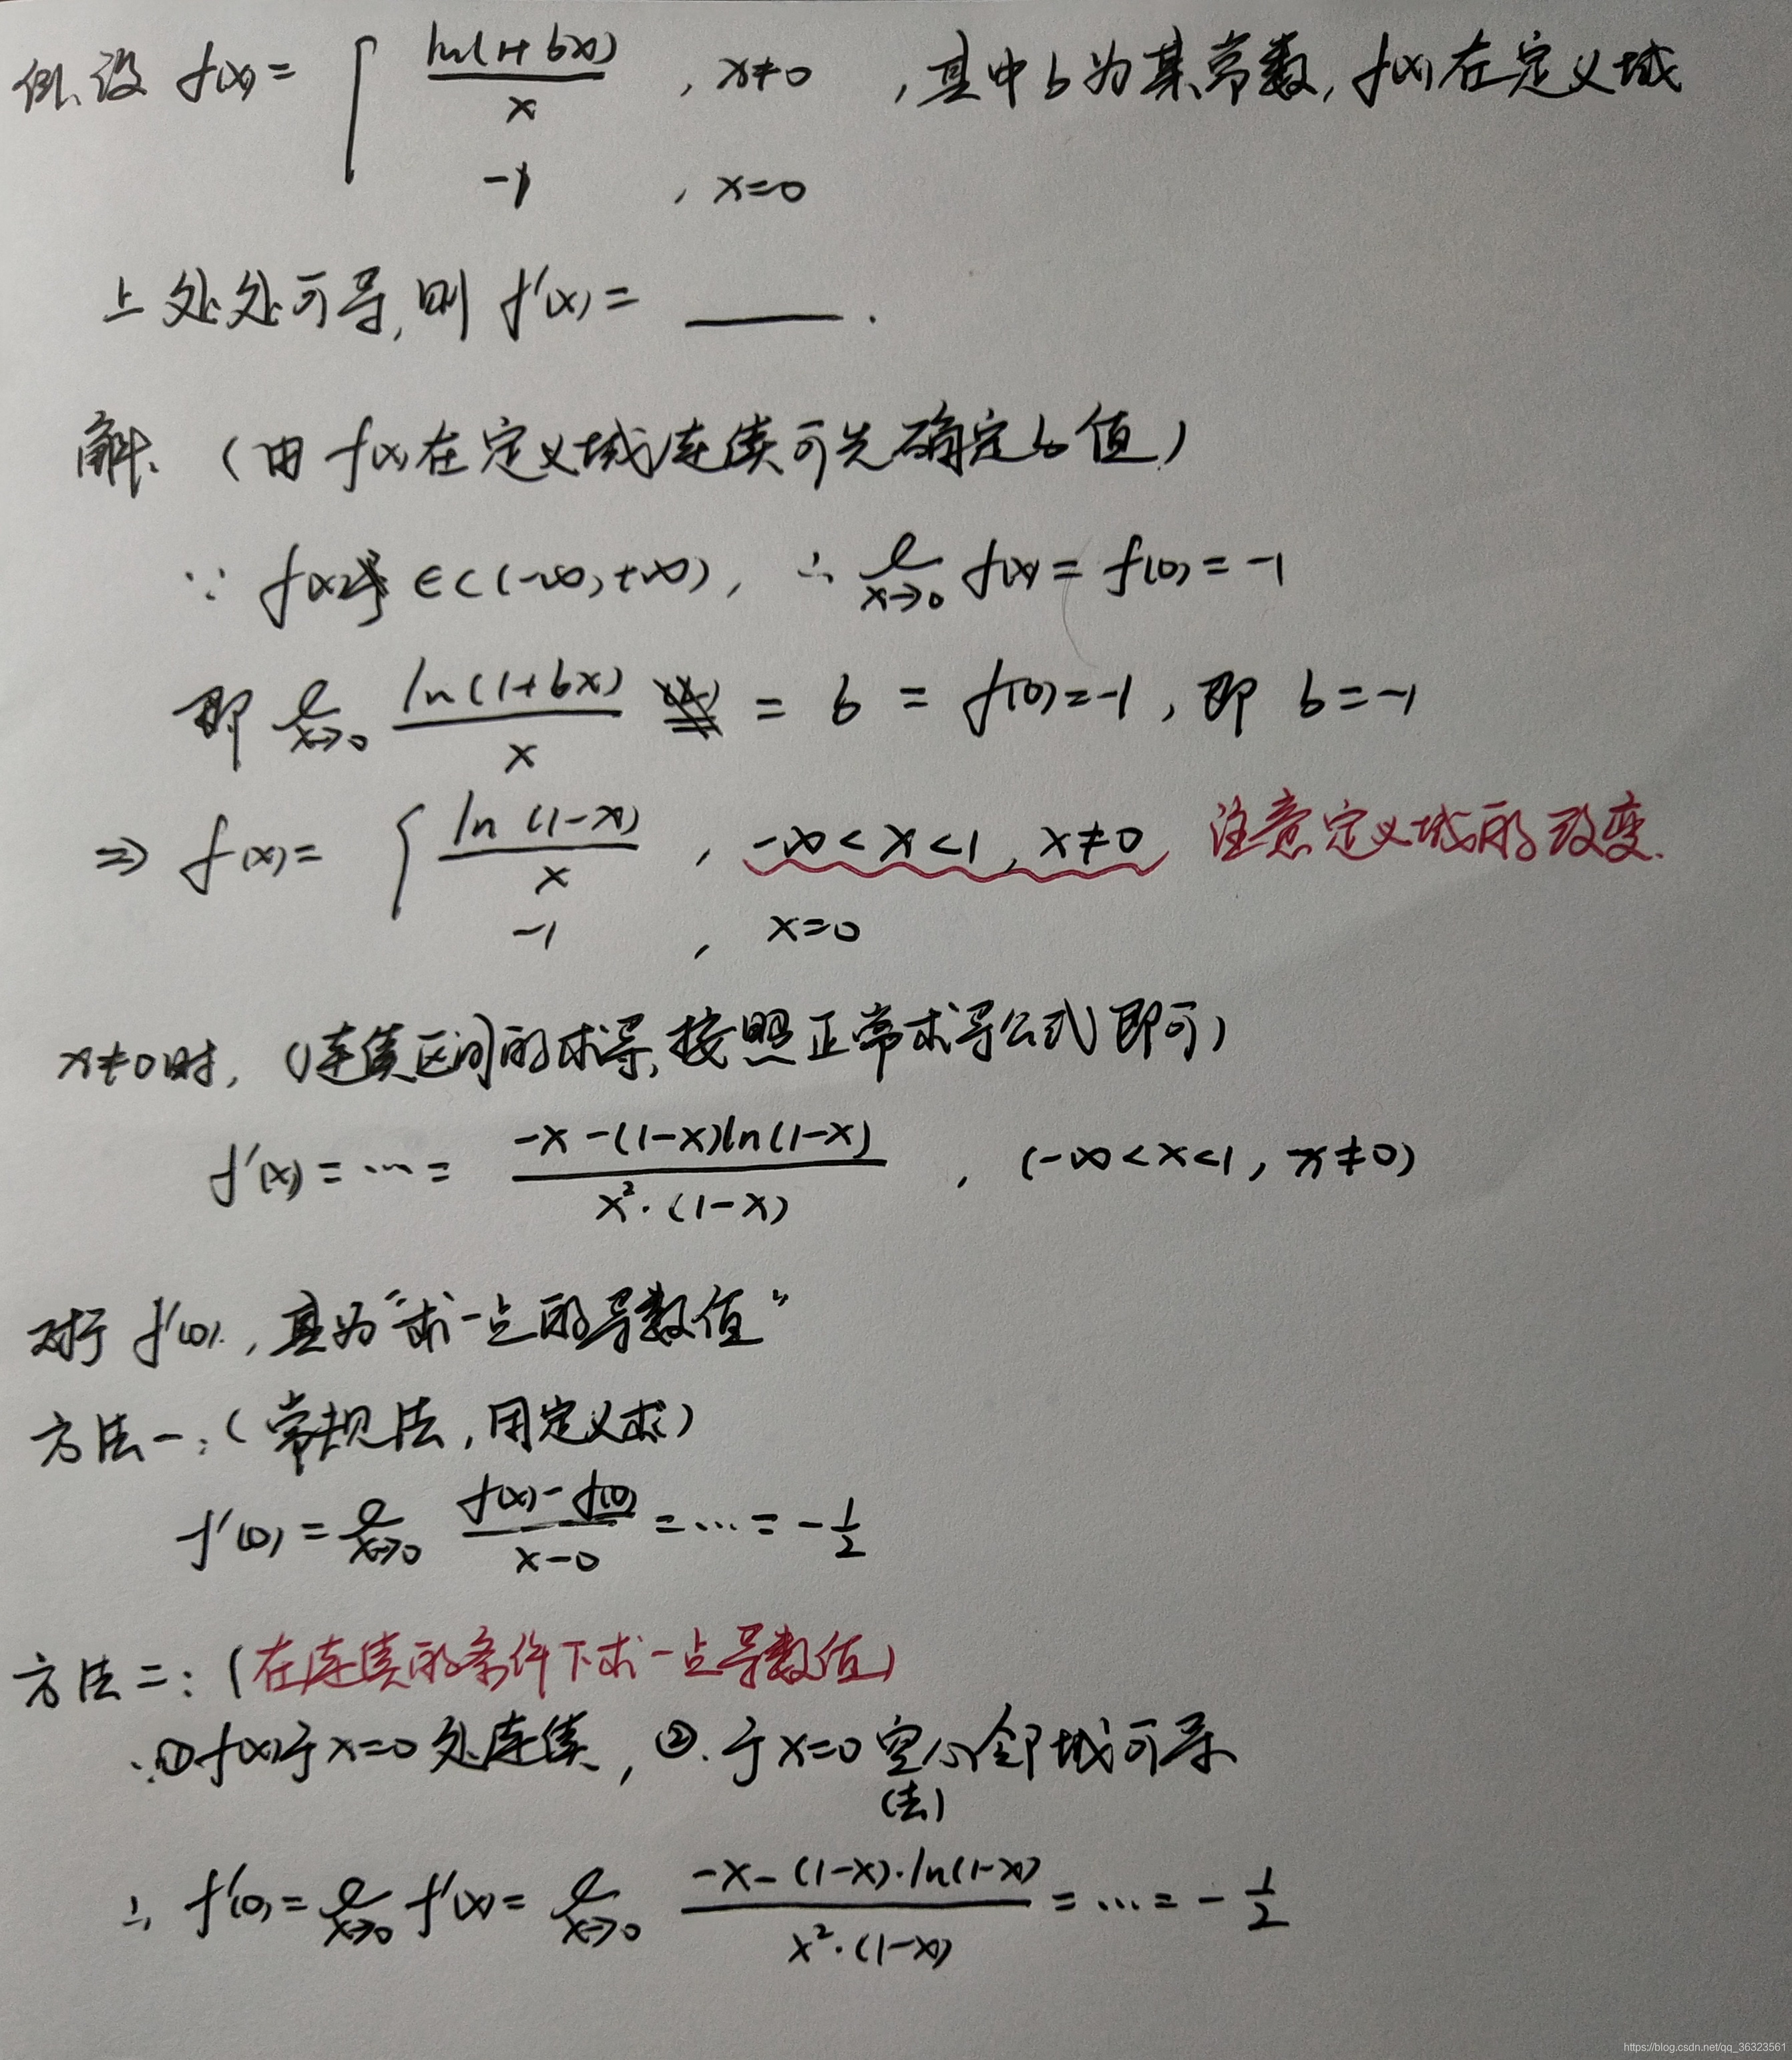 例、设 f(x)= { ln(1+bx)/x , x≠0 ,其中b为某常数, f(x)在定义域
-1 , x=0
上处处可导,则 f'(x)= ____ .
解、(由f(x)在定义域连续可先确定b值)
∵ f(x) ∈C(-∞,+∞), ∴ l x→0 f(x)= f(0)=-1
即 l x→0 ln(1+bx)/x = b = f(0)=-1, 即 b=-1
⇒ f(x)= { ln(1-x)/x , -∞<x<1, x≠0 注意定义域的改变.
-1 , x=0
x≠0时, (连续区间的求导,按照正常求导公式即可)
f'(x)=…= -x-(1-x)ln(1-x) / x²·(1-x) , (-∞<x<1, x≠0)
对于 f'(0), 其为“求一点的导数值”
方法一:(常规法,用定义求)
f'(0)= l x→0 f(x)-f(0) / x-0 =…= -1/2
方法二:(在连续的条件下求一点导数值)
∵①f(x)于x=0处连续, ②.于x=0空心邻域可导
(去)
∴ f'(0)= l x→0 f'(x)= l x→0 -x-(1-x)·ln(1-x) / x²·(1-x) =…= -1/2
https://blog.csdn.net/qq_36323561